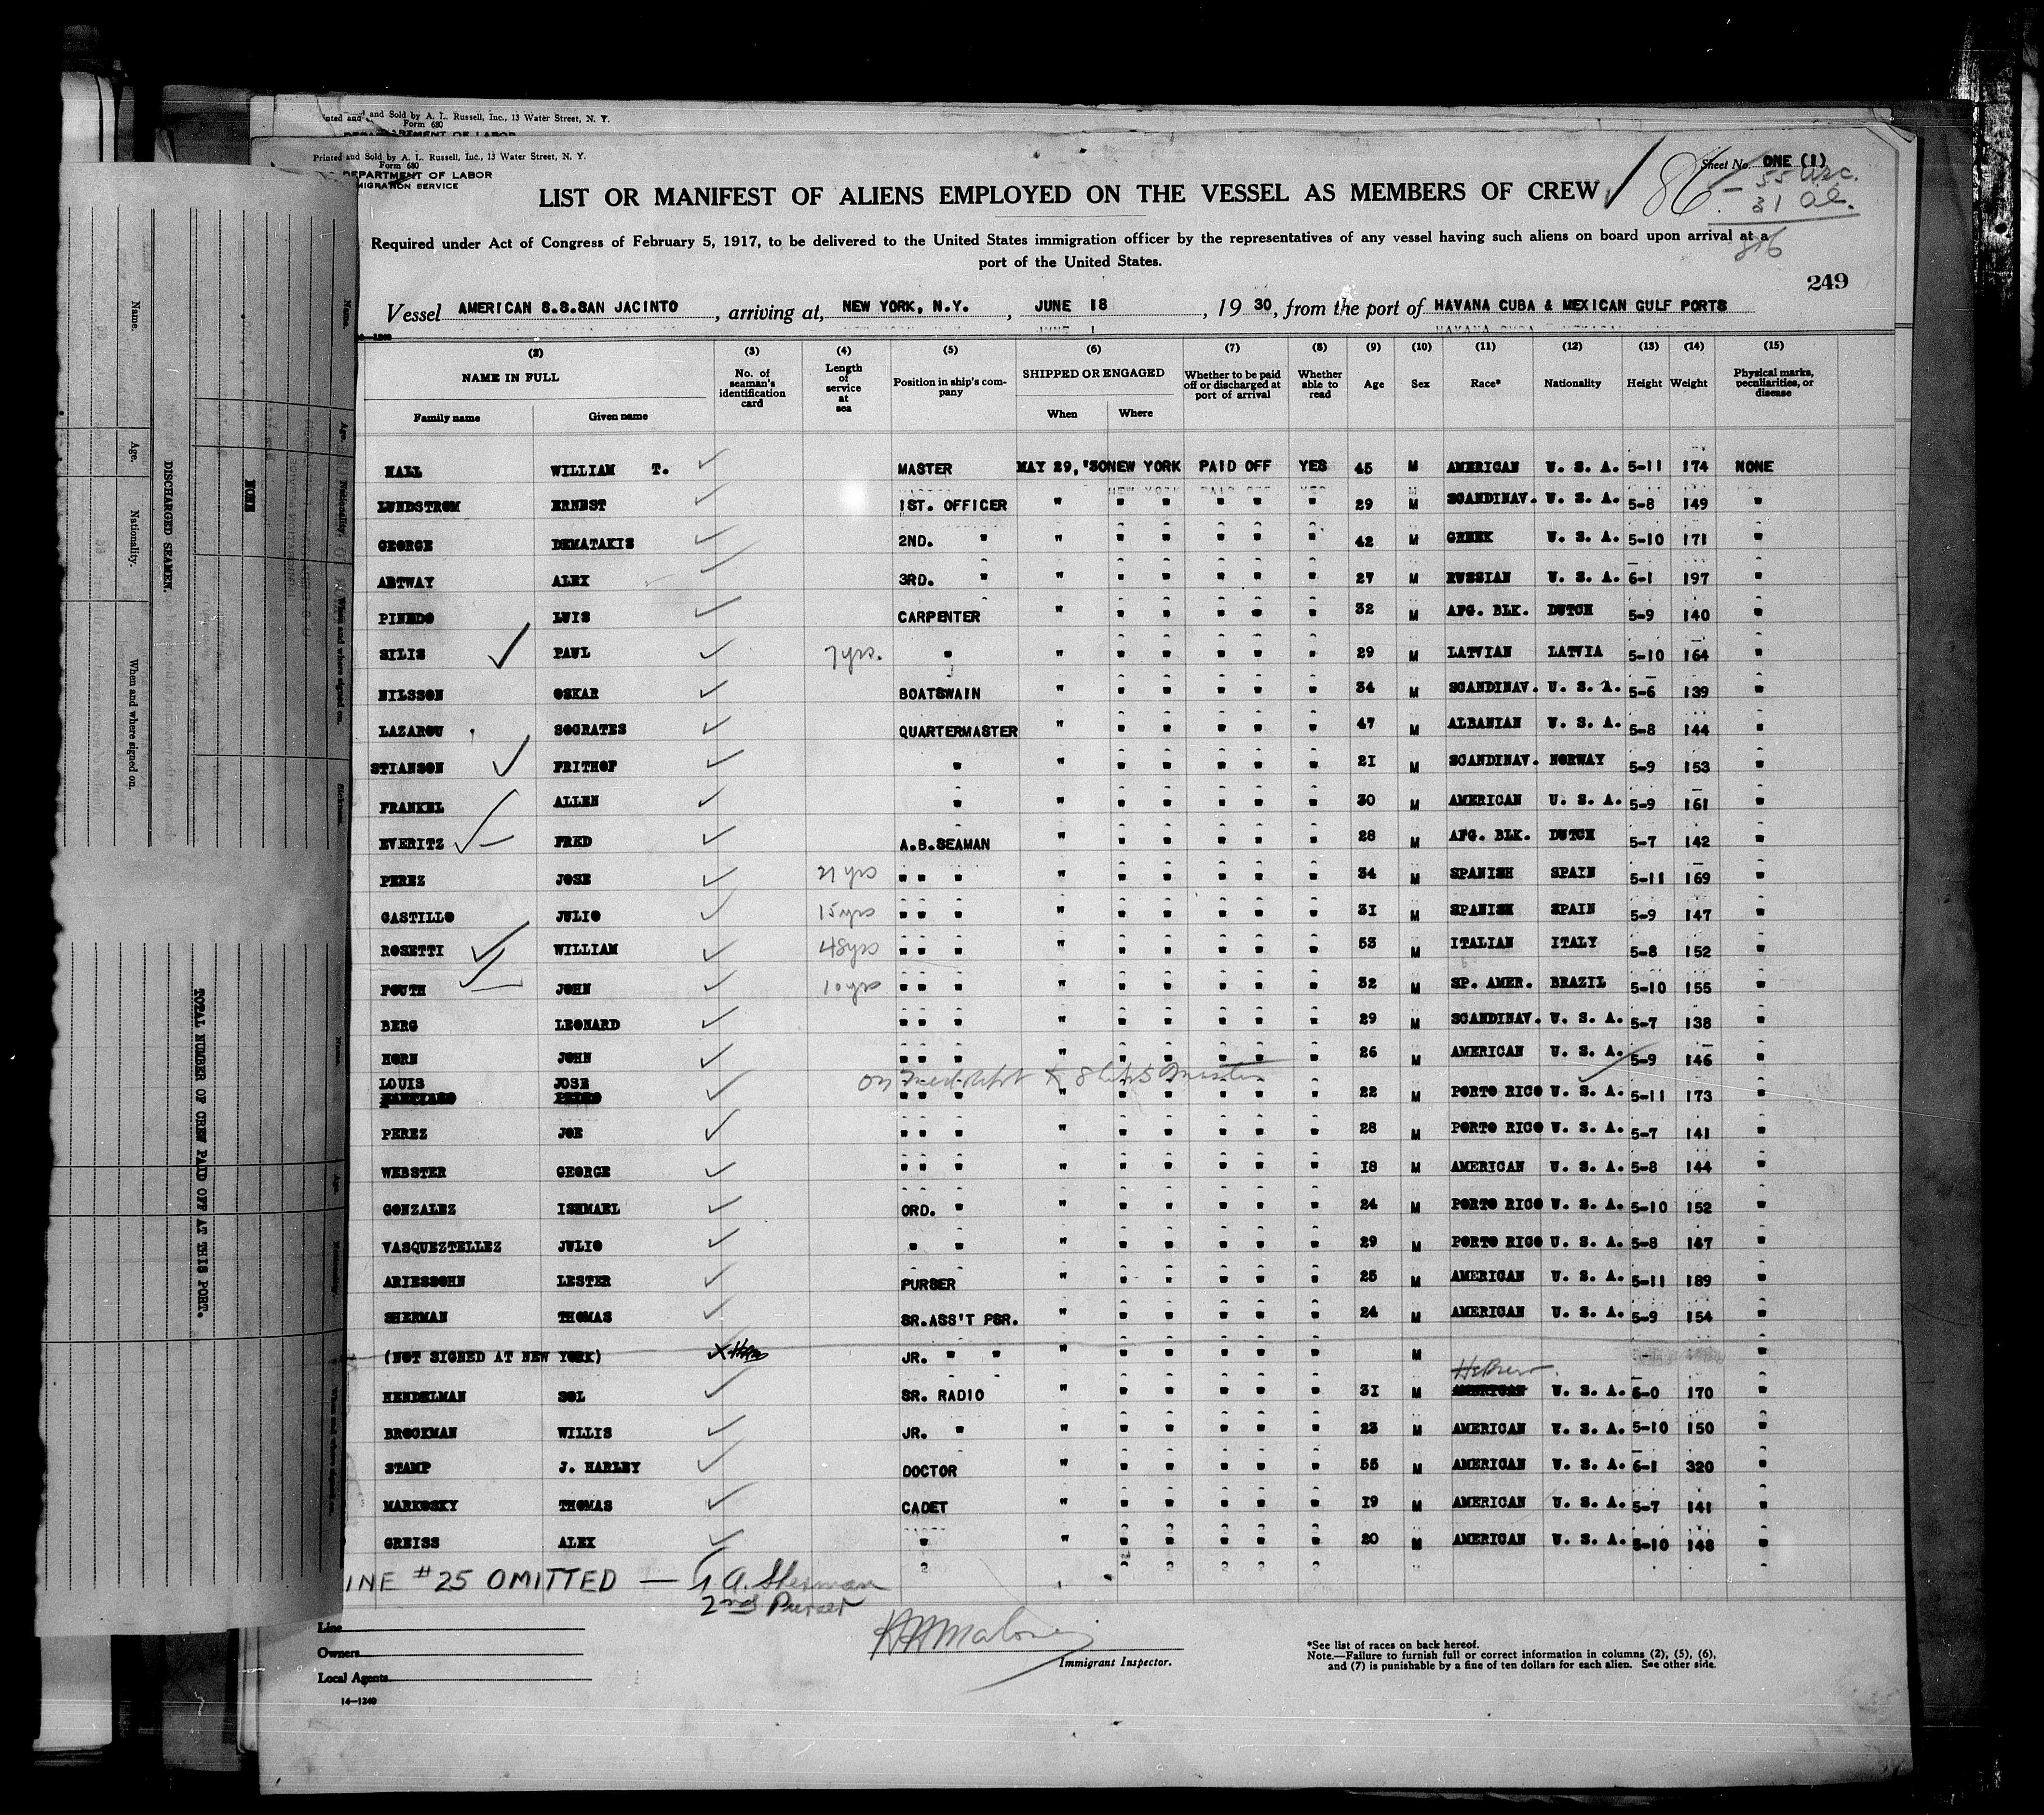 Printed and Sold by A. L. Russell, Inc., 13 Water Street, N. Y.
Form 680
DEPARTMENT OF LABOR
IMMIGRATION SERVICE
Sheet No. ONE (1)
86 - 55 U.S.C.
31 al.
86
LIST OR MANIFEST OF ALIENS EMPLOYED ON THE VESSEL AS MEMBERS OF CREW
Required under Act of Congress of February 5, 1917, to be delivered to the United States immigration officer by the representatives of any vessel having such aliens on board upon arrival at a
port of the United States.
249
Vessel AMERICAN S.S.SAN JACINTO, arriving at, NEW YORK, N.Y., JUNE 18, 19 30, from the port of HAVANA CUBA & MEXICAN GULF PORTS
(2) (3) (4) (5) (6) (7) (8) (9) (10) (11) (12) (13) (14) (15)
NAME IN FULL No. of seaman's identification card Length of service at sea Position in ship's company SHIPPED OR ENGAGED Whether to be paid off or discharged at port of arrival Whether able to read Age Sex Race* Nationality Height Weight Physical marks, peculiarities, or disease
Family name Given name When Where
HALL WILLIAM T. MASTER MAY 29, '30 NEW YORK PAID OFF YES 45 M AMERICAN U. S. A. 5-11 174 NONE
LUNDSTROM ERNEST 1ST. OFFICER " " " " " " 29 M SCANDINAV. U. S. A. 5-8 149 "
GEORGE DEMATAKIS 2ND. " " " " " " " 42 M GREEK U. S. A. 5-10 171 "
ABTWAY ALEX 3RD. " " " " " " " 27 M RUSSIAN U. S. A. 6-1 197 "
PINEDO LUIS CARPENTER " " " " " " 32 M AFG. BLK. DUTCH 5-9 140 "
SILIS PAUL 7 yrs. " " " " " " " 29 M LATVIAN LATVIA 5-10 164 "
NILSSON OSKAR BOATSWAIN " " " " " " 34 M SCANDINAV. U. S. A. 5-6 139 "
LAZAROU SOCRATES QUARTERMASTER " " " " " " 47 M ALBANIAN U. S. A. 5-8 144 "
STIANSON FRITHOF " " " " " " " 21 M SCANDINAV. NORWAY 5-9 153 "
FRANKEL ALLEN " " " " " " " 30 M AMERICAN U. S. A. 5-9 161 "
EVERITZ FRED A.B.SEAMAN " " " " " " 28 M AFG. BLK. DUTCH 5-7 142 "
PEREZ JOSE 21 yrs " " " " " " " " " 34 M SPANISH SPAIN 5-11 169 "
CASTILLO JULIO 15 yrs " " " " " " " " " 31 M SPANISH SPAIN 5-9 147 "
ROSETTI WILLIAM 48 yrs " " " " " " " " " 53 M ITALIAN ITALY 5-8 152 "
FOUTH JOHN 10 yrs " " " " " " " " " 32 M SP. AMER. BRAZIL 5-10 155 "
BERG LEONARD " " " " " " " " " 29 M SCANDINAV. U. S. A. 5-7 138 "
HORN JOHN " " " " " " " " " 26 M AMERICAN U. S. A. 5-9 146 "
LOUIS JOSE " " " " " " " " " 22 M PORTO RICO U. S. A. 5-11 173 "
PEREZ JOE " " " " " " " " " 28 M PORTO RICO U. S. A. 5-7 141 "
WEBSTER GEORGE " " " " " " " " " 18 M AMERICAN U. S. A. 5-8 144 "
GONZALEZ ISHMAEL ORD. " " " " " " " 24 M PORTO RICO U. S. A. 5-10 152 "
VASQUEZTELLEZ JULIO " " " " " " " " 29 M PORTO RICO U. S. A. 5-8 147 "
ARIESSOHN LESTER PURSER " " " " " " 25 M AMERICAN U. S. A. 5-11 189 "
SHERMAN THOMAS SR.ASS'T PSR. " " " " " " 24 M AMERICAN U. S. A. 5-9 154 "
(NOT SIGNED AT NEW YORK) JR. " " " " " " " " M "
HENDELMAN SOL SR. RADIO " " " " " " 31 M Hebrew AMERICAN U. S. A. 6-0 170 "
BROCKMAN WILLIS JR. " " " " " " " 23 M AMERICAN U. S. A. 5-10 150 "
STAMP J. HARLEY DOCTOR " " " " " " 55 M AMERICAN U. S. A. 6-1 320 "
MARKOSKY THOMAS CADET " " " " " " 19 M AMERICAN U. S. A. 5-7 141 "
GREISS ALEX " " " " " " " 20 M AMERICAN U. S. A. 5-10 148 "
LINE #25 OMITTED — T. A. Sherman
2nd Purser
Line
Owners
Local Agents
14—1240
Immigrant Inspector.
*See list of races on back hereof.
Note.—Failure to furnish full or correct information in columns (2), (5), (6),
and (7) is punishable by a fine of ten dollars for each alien. See other side.
DISCHARGED SEAMEN.
Name. Age. Nationality. When and where signed on.
NONE
TOTAL NUMBER OF CREW PAID OFF AT THIS PORT.